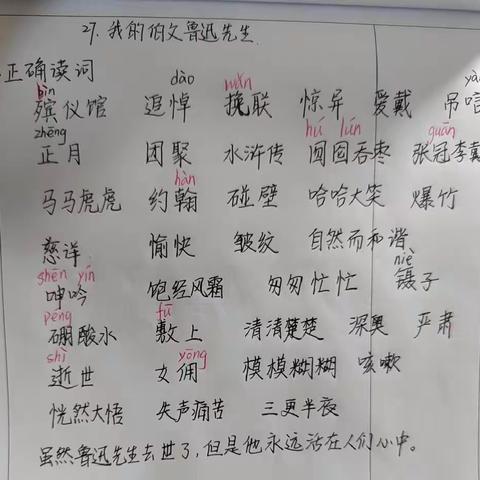 27. 我的伯父鲁迅先生.
正确读词
bìn dào wǎn
殡仪馆 追悼 挽联 惊异 爱戴 吊唁
zhēng hú lún guān
正月 团聚 水浒传 囫囵吞枣 张冠李戴
hàn
马马虎虎 约翰 碰壁 哈哈大笑 爆竹
慈祥 愉快 皱纹 自然而和谐
shēn yín niè
呻吟 饱经风霜 匆匆忙忙 镊子
péng fū
硼酸水 敷上 清清楚楚 深奥 严肃
shì yōng
逝世 女佣 模模糊糊 咳嗽
恍然大悟 失声痛苦 三更半夜
虽然鲁迅先生去世了,但是他永远活在人们心中。